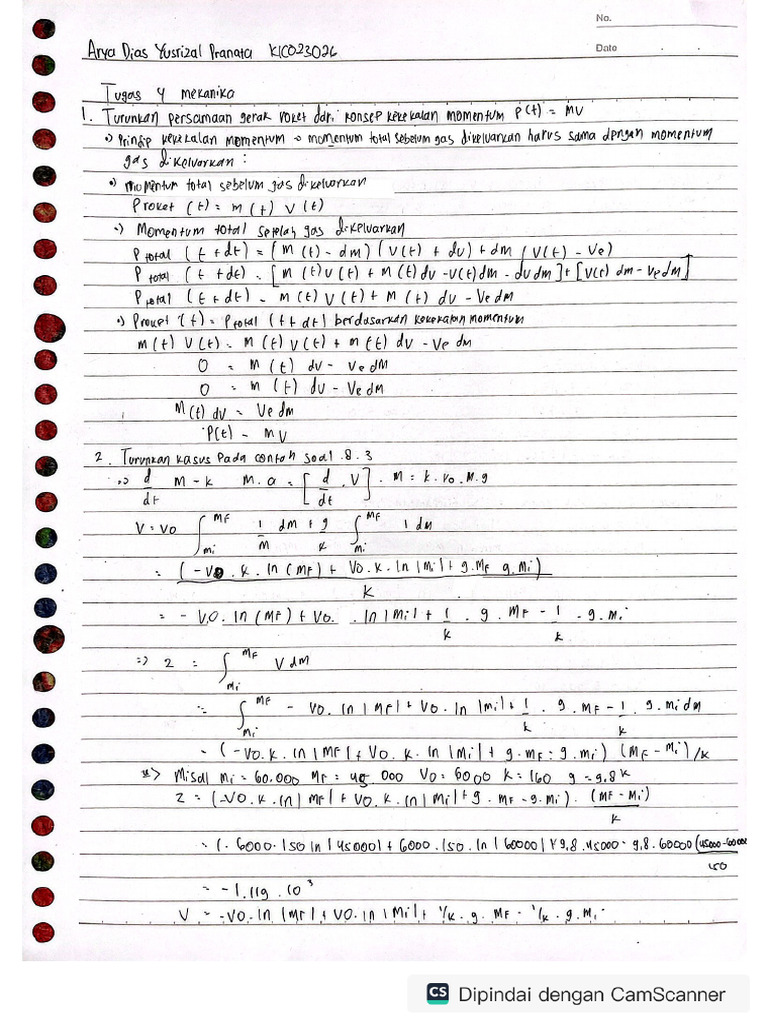 No.
Date
Arya Dias Yusrizal Pranata K1C023026
Tugas 4 mekanika
1. Turunkan persamaan gerak roket dari konsep kekekalan momentum P(t) = mv
•) Prinsip kekekalan momentum → momentum total sebelum gas dikeluarkan harus sama dengan momentum
gas dikeluarkan :
•) momentum total sebelum gas dikeluarkan
Proket (t) = m (t) v (t)
•) Momentum total setelah gas dikeluarkan
P total (t + dt) = (m (t) - dm) (v(t) + dv) + dm (v(t) - Ve)
P total (t + dt) = [m (t) v(t) + m(t) dv - v(t) dm - dv dm] + [v(t) dm - Ve dm]
P total (t + dt) = m (t) v (t) + m (t) dv - Ve dm
•) Proket (t) = Ptotal (t + dt) berdasarkan kekekalan momentum
m(t) v(t) = m(t) v(t) + m(t) dv - Ve dm
0 = m (t) dv - Ve dm
0 = m (t) dv - Ve dm
M(t) dv = Ve dm
P(t) = mv
2. Turunkan kasus pada contoh soal 8.3
=> d/dt m = k m. a = [d/dt . V] . m = k. vo. m. g
V = vo ∫ mi MF 1/m dm + g/k ∫ mi MF 1 dm
= (-vo. k. ln (MF) + Vo. k. ln |Mi| + g. MF g. Mi) / k
= - V.O. ln (MF) + Vo. . ln |Mi| + 1/k . g . MF - 1/k . g. Mi
=> 2 = ∫ mi MF V dm
= ∫ mi MF - Vo. ln |MF| + Vo. ln |mi| + 1/k . g . MF - 1/k . g. mi dm
= (-Vo. k. ln |MF| + Vo. k. ln |Mi| + g. MF - g. mi) (MF - Mi) /k
*> Misal Mi = 60.000 MF = 45 000 Vo = 6000 k = 160 g = 9.8 k
2 = (-Vo. k. ln |MF| + Vo. k. ln |Mi| + g. MF - g. mi) . (MF - Mi) / k
= (- 6000. 150 ln |45000| + 6000. 150. ln |60000| + 9,8 . 45000 - 9,8. 60000 (45000-60000) / 150
= -1,119 . 10³
V = -Vo. ln |MF| + Vo. ln |Mi| + 1/k. g. MF - 1/k . g. Mi
CS Dipindai dengan CamScanner